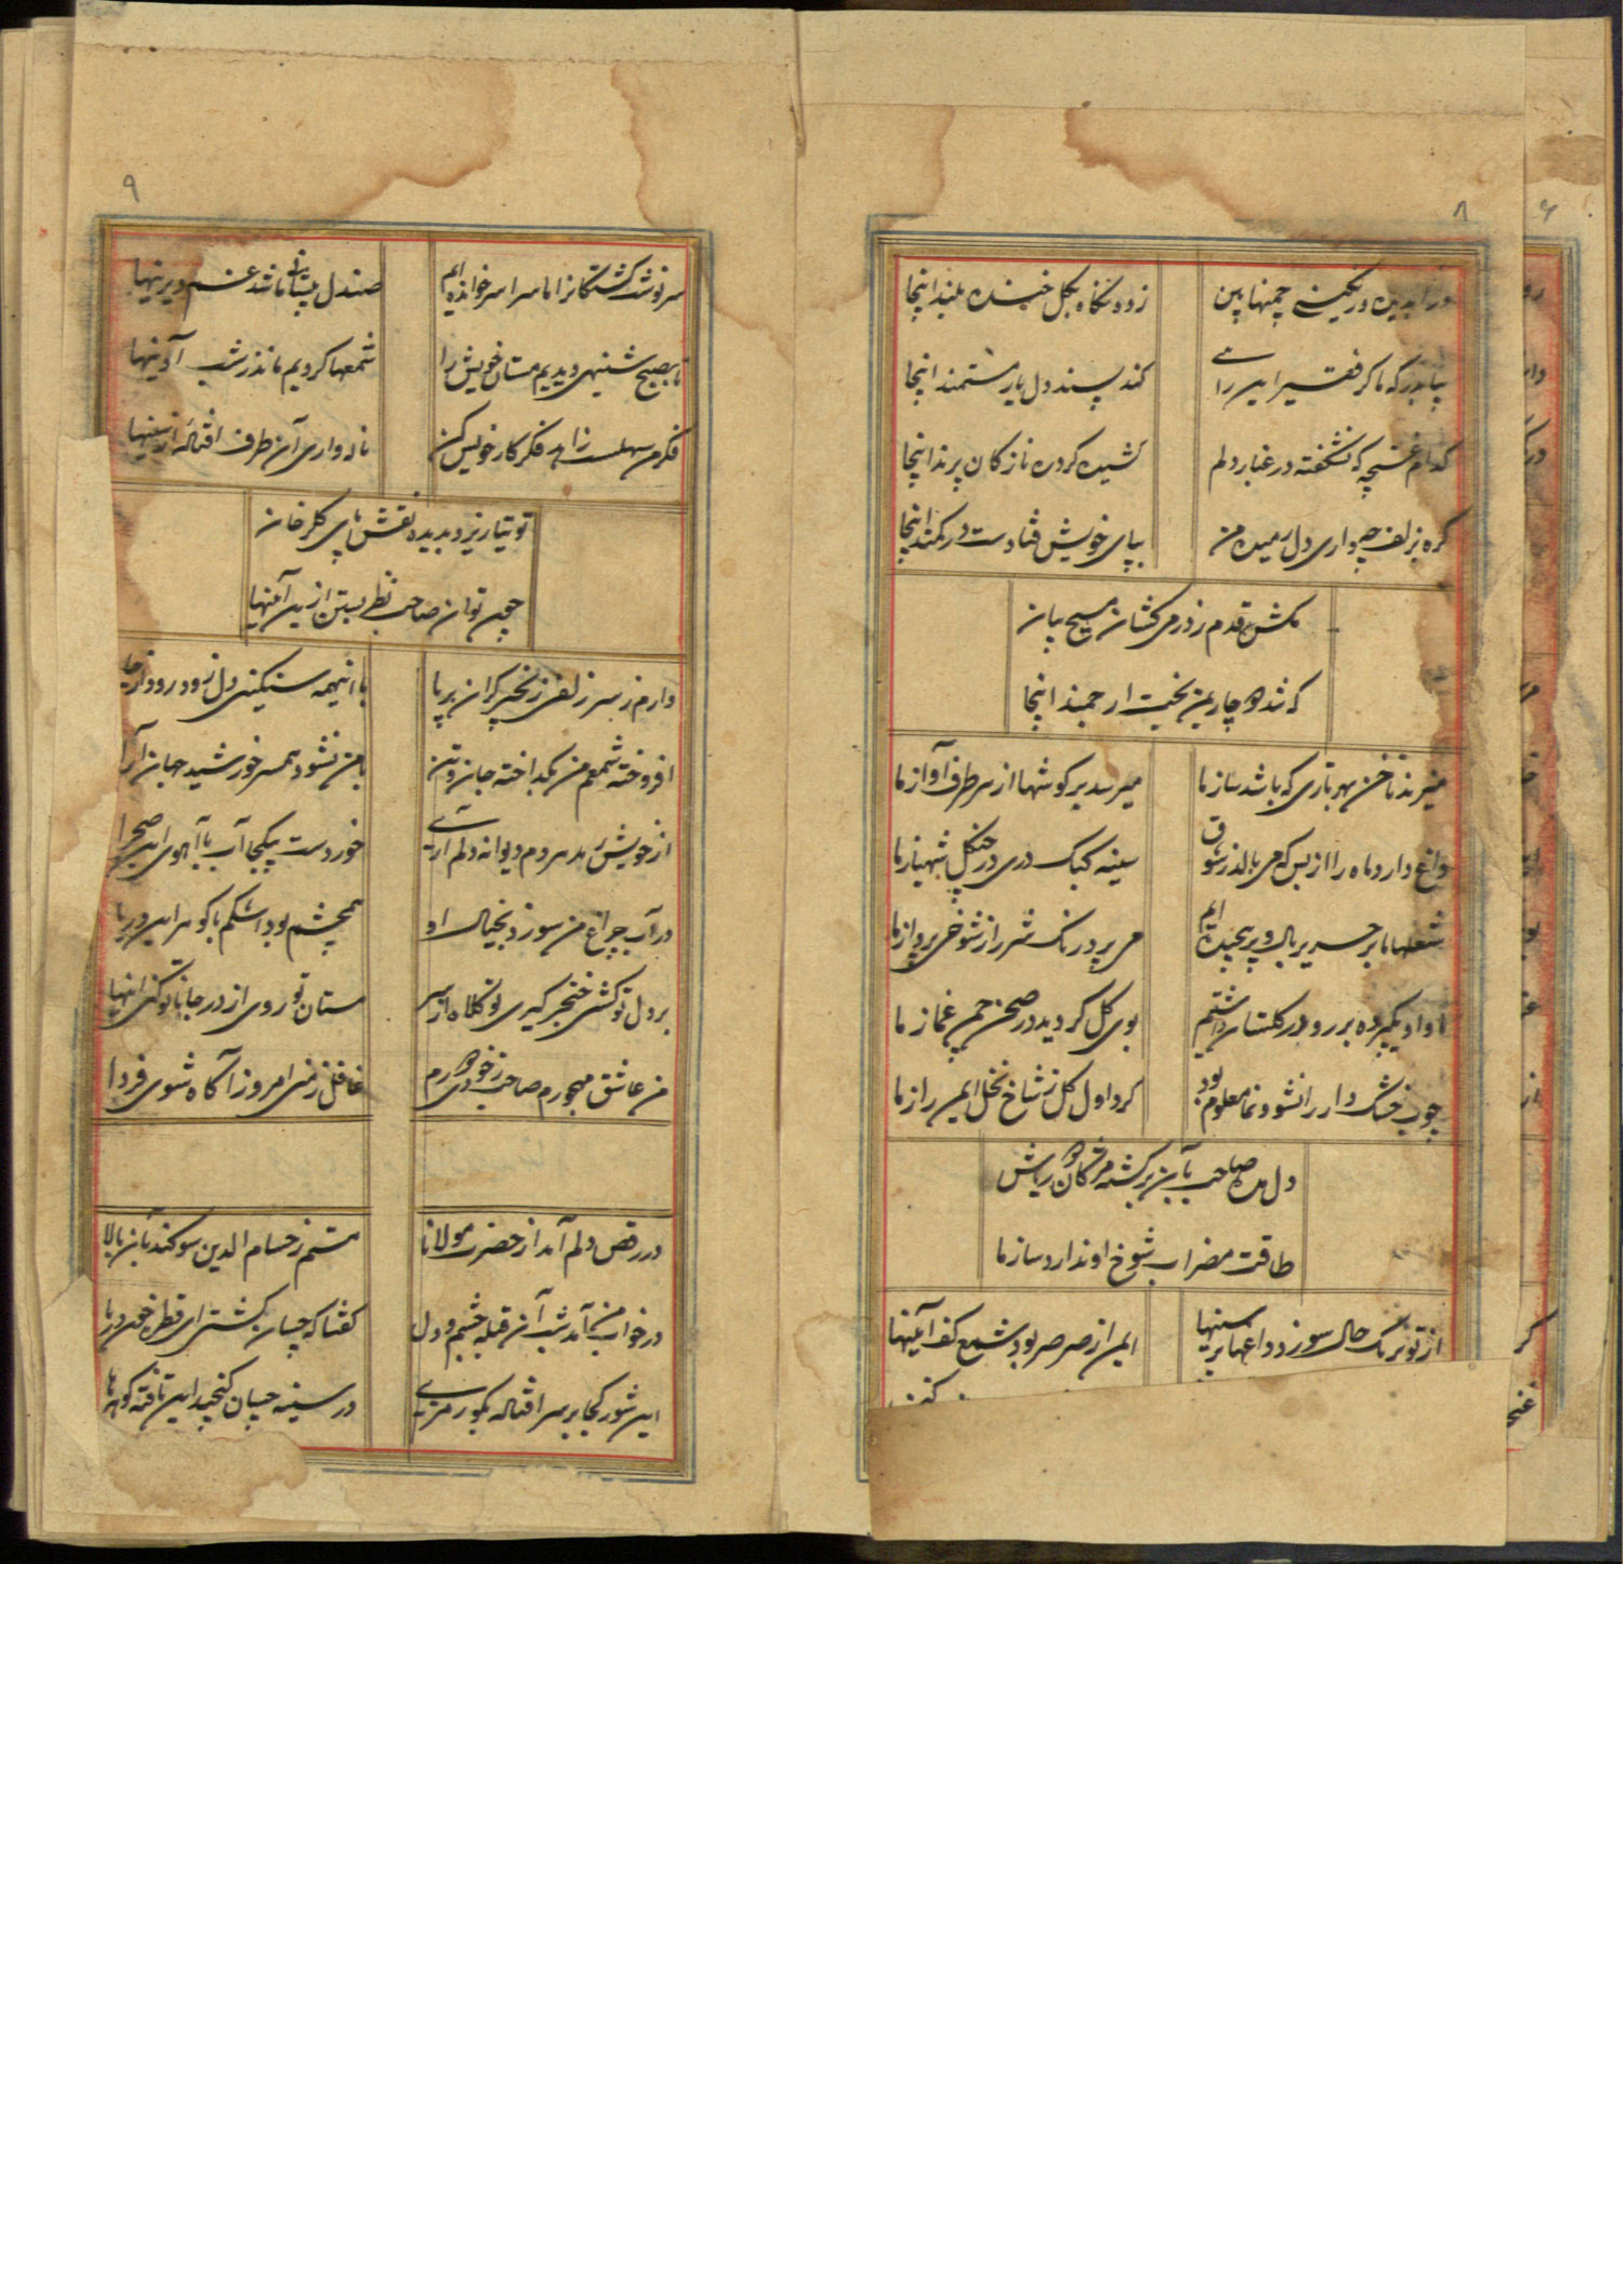 ۸
در ابدیده رنگینی چمنها بین زده نگاه بگل خنده بلند اینجا
بیا بدرگه ما گر فقیر این راهی کند پسند دل یار مستمند اینجا
کدام غنچه که نشکفته در غبار دلم کشیده گرده نازکان پرند اینجا
گره بزلف چه داری دل رمیده من بپای خویش فتادست در کمند اینجا
مکش قدم ز در می کشان مسیح بیان
که شد دو چار بمن بخت ارجمند اینجا
میزند ناخن بهر تاری که باشد ساز ما میرسد بر گوشها از هر طرف آواز ما
داغ دارد ماه را از بس که می بالد ز شوق سینه کبک دری در چنگل شهباز ما
شعلها ما بر حریر بال و پر پیچیده ایم می پرد رنگ شرر از شوخی پرواز ما
او پرده بر رو در گلستان داشتیم بوی گل گردید در صحن چمن غماز ما
چوب خشک دار را نشو و نما معلوم بود کرد اول گل ز شاخ نخل ایمن راز ما
دل مده صاحب بآن برگشته مژگان ریاش
طاقت مضراب شوخ او ندارد ساز ما
از تو نیرنگ حال سوزد داغها بر سینها ایمن از صرصر بود شمع کف آئینها
۹
سرنوشت کشتگانرا ما سراسر خوانده ایم صندل پیشانی ما شد غم دیرینها
تا بصبح شنبهی دیدیم مستان خویش را شمعها کردیم ما نذر شب آدینها
فکر من سهلست زاهد فکر کار خویش کن ناله واری آن طرف افتاله از سینها
توتیا ریزد بدیده نقش پای گلرخان
چون توان صاحب نظر بستن ازین آئینها
دارم ز سر زلفی زنجیر گران بر پا با اینهمه سنگینی دل زود رود از جا
افروخته شمعم من بگداخته جان و تن با من نشود همسر خورشید جهان آرا
از خویش رمد هر دم دیوانه دلم آری خوردست بیکجا آب با آهوی این صحرا
در آب چراغ من سوزد بخیال او همچشم بود اشکم با گوهر این دریا
بر دل تو کشی خنجر گیری تو کلاه از سر مستان تو روی از در جانا تو کنی اینها
من عاشق مهجورم صاحب ز خودی دورم غافل ز منی امروز آگاه شوی فردا
در رقص دلم آمد از حضرت مولانا مستم ز حسام الدین سوگند بآن بالا
در خواب من آمد شب آن قبله چشم و دل گفتا که چسان گشتی ای قطره خون دریا
این شور کجا بر سر افتاله بگو رمزی در سینه چسان گنجید این تافته گوهرها